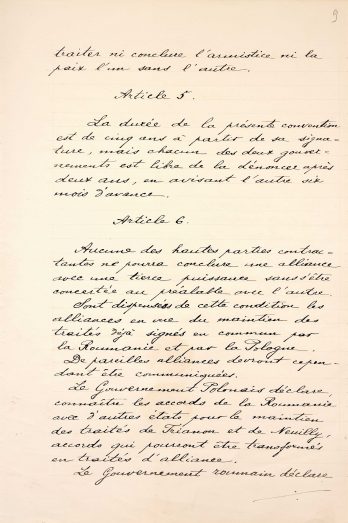 9
traiter ni conclure l'armistice ni la
paix l'un sans l'autre.
Article 5.
La durée de la présente convention
est de cinq ans à partir de sa signa-
ture, mais chacun des deux gouver-
nements est libre de la dénoncer après
deux ans, en avisant l'autre six
mois d'avance.
Article 6.
Aucune des hautes parties contrac-
tantes ne pourra conclure une alliance
avec une tierce puissance sans s'être
concertée au préalable avec l'autre.
Sont dispensées de cette condition les
alliances en vue du maintien des
traités déjà signés en commun par
la Roumanie et par la Pologne.
De pareilles alliances devront cepen-
dant être communiquées.
Le Gouvernement Polonais déclare
connaître les accords de la Roumanie
avec d'autres états pour le maintien
des traités de Trianon et de Neuilly,
accords qui pourront être transformés
en traités d'alliance.
Le Gouvernement roumain déclare